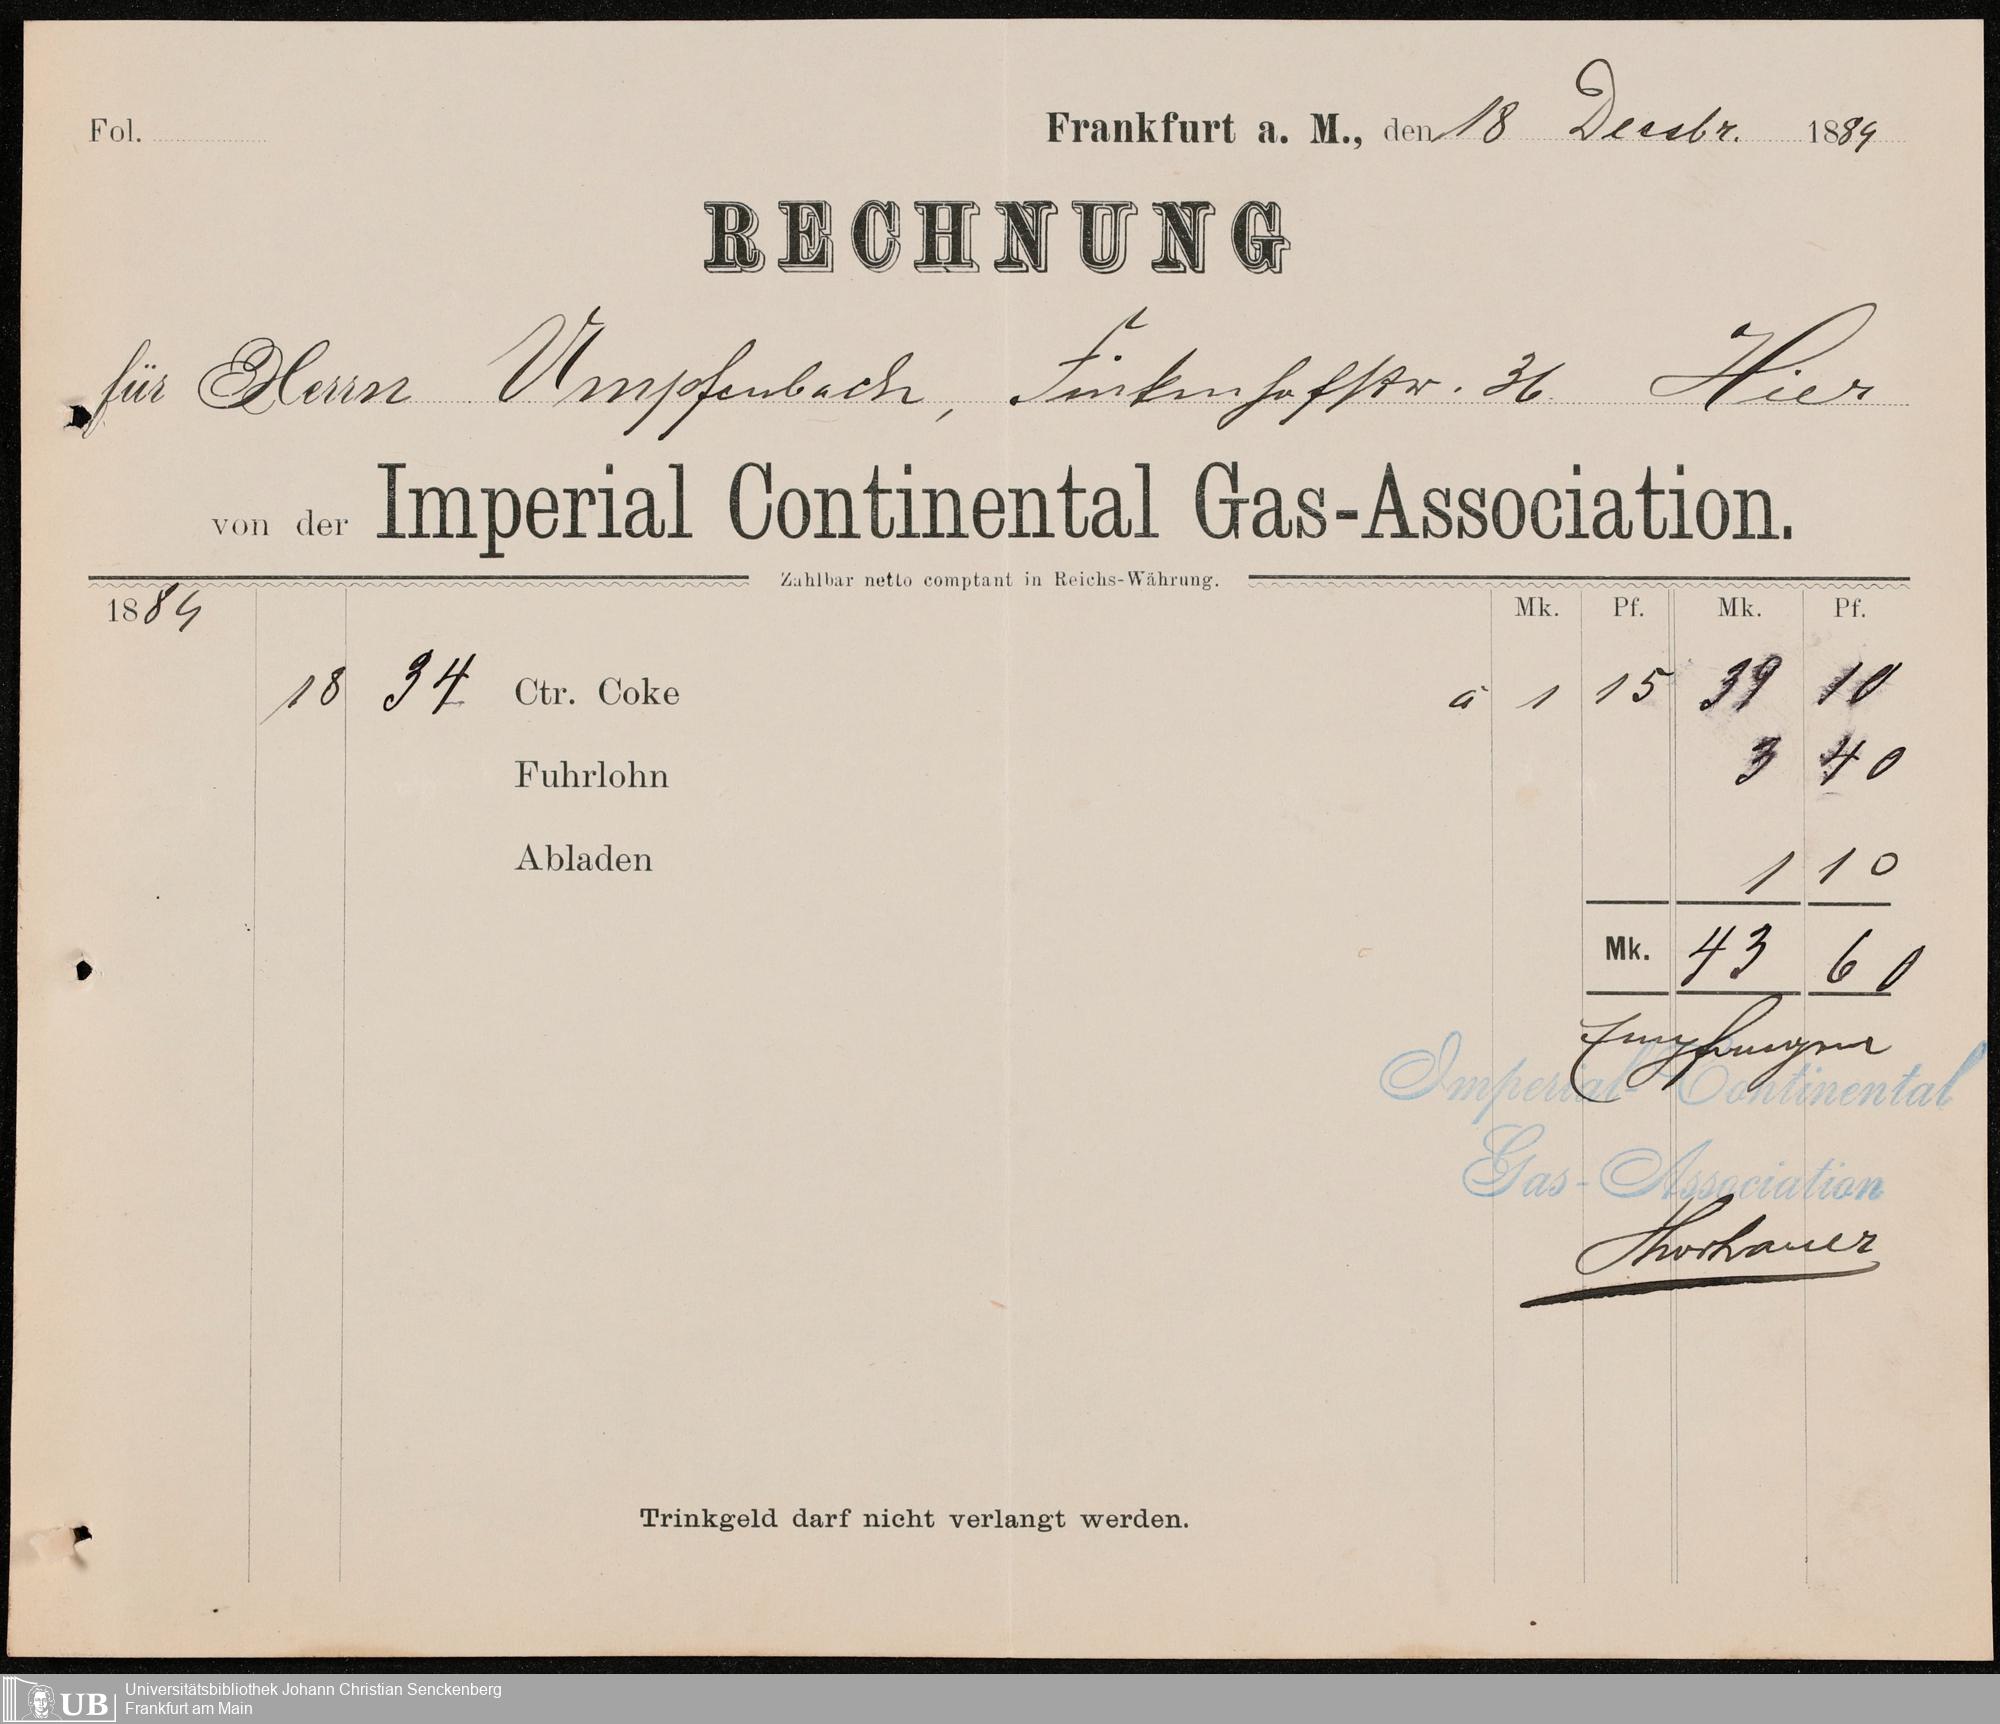 Fol. Frankfurt a. M., den 18 Decbr. 1889
RECHNUNG
für Herrn Umpfenbach, Finkenhofstr. 36 Hier
von der Imperial Continental Gas-Association.
Zahlbar netto comptant in Reichs-Währung.
1889 Mk. Pf. Mk. Pf.
18 34 Ctr. Coke à 1 15 39 10
Fuhrlohn 3 40
Abladen 1 10
Mk. 43 60
Empfangen
Imperial-Continental
Gas-Association
Trinkgeld darf nicht verlangt werden.
UB Universitätsbibliothek Johann Christian Senckenberg
Frankfurt am Main